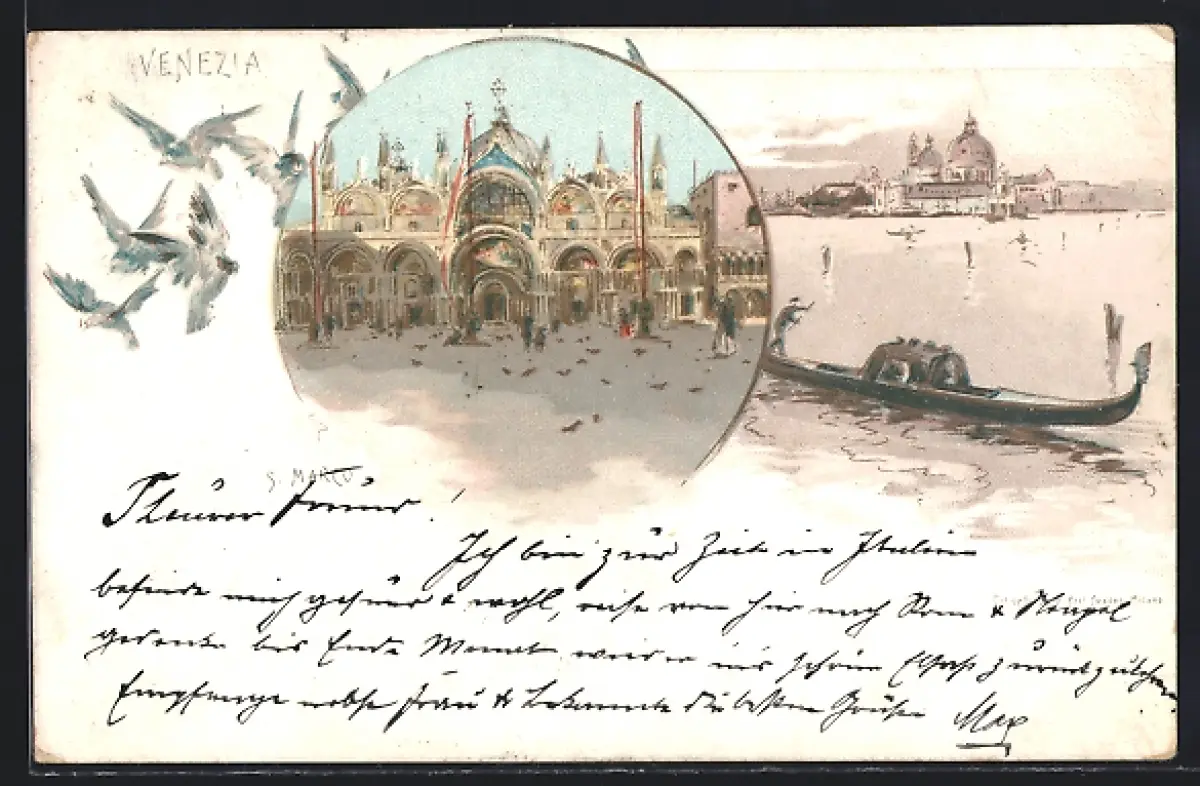 VENEZIA
S. MARCO
Theurer Freund!
Ich bin zur Zeit in Italien
befinde mich gesund & wohl, reise von hier nach Rom & Neapel
gedenke bis Ende Monat wieder ins schöne Elsaß zurückzukehren
Empfange nebst Frau & Bekannte die besten Grüße Max